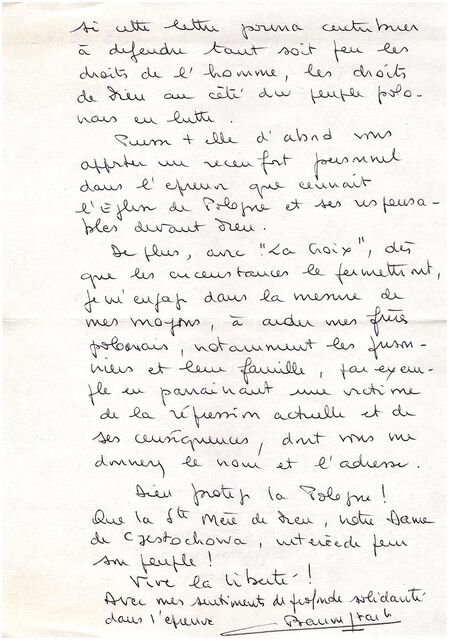 si cette lettre pourra contribuer
à défendre tant soit peu les
droits de l'homme, les droits
de Dieu au côté du peuple polo-
nais en lutte.
Puisse-t-elle d'abord vous
apporter un réconfort personnel
dans l'épreuve que connaît
l'Eglise de Pologne et ses responsa-
bles devant Dieu.
De plus, avec "La Croix", dès
que les circonstances le permettront,
je m'engage dans la mesure de
mes moyens, à aider mes frères
polonais, notamment les prison-
niers et leur famille, par exem-
ple en parrainant une victime
de la répression actuelle et de
ses conséquences, dont vous me
donnerez le nom et l'adresse.
Dieu protège la Pologne !
Que la Ste Mère de Dieu, notre Dame
de Czestochowa, intercède pour
son peuple !
Vive la liberté !
Avec mes sentiments de profonde solidarité
dans l'épreuve